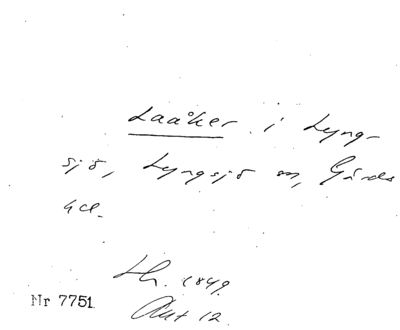 Laaåker i Lyng-
sjö, Lyngsjö sn, Gärds
hd.
Lh. 1849.
Akt 12.
Nr 7751